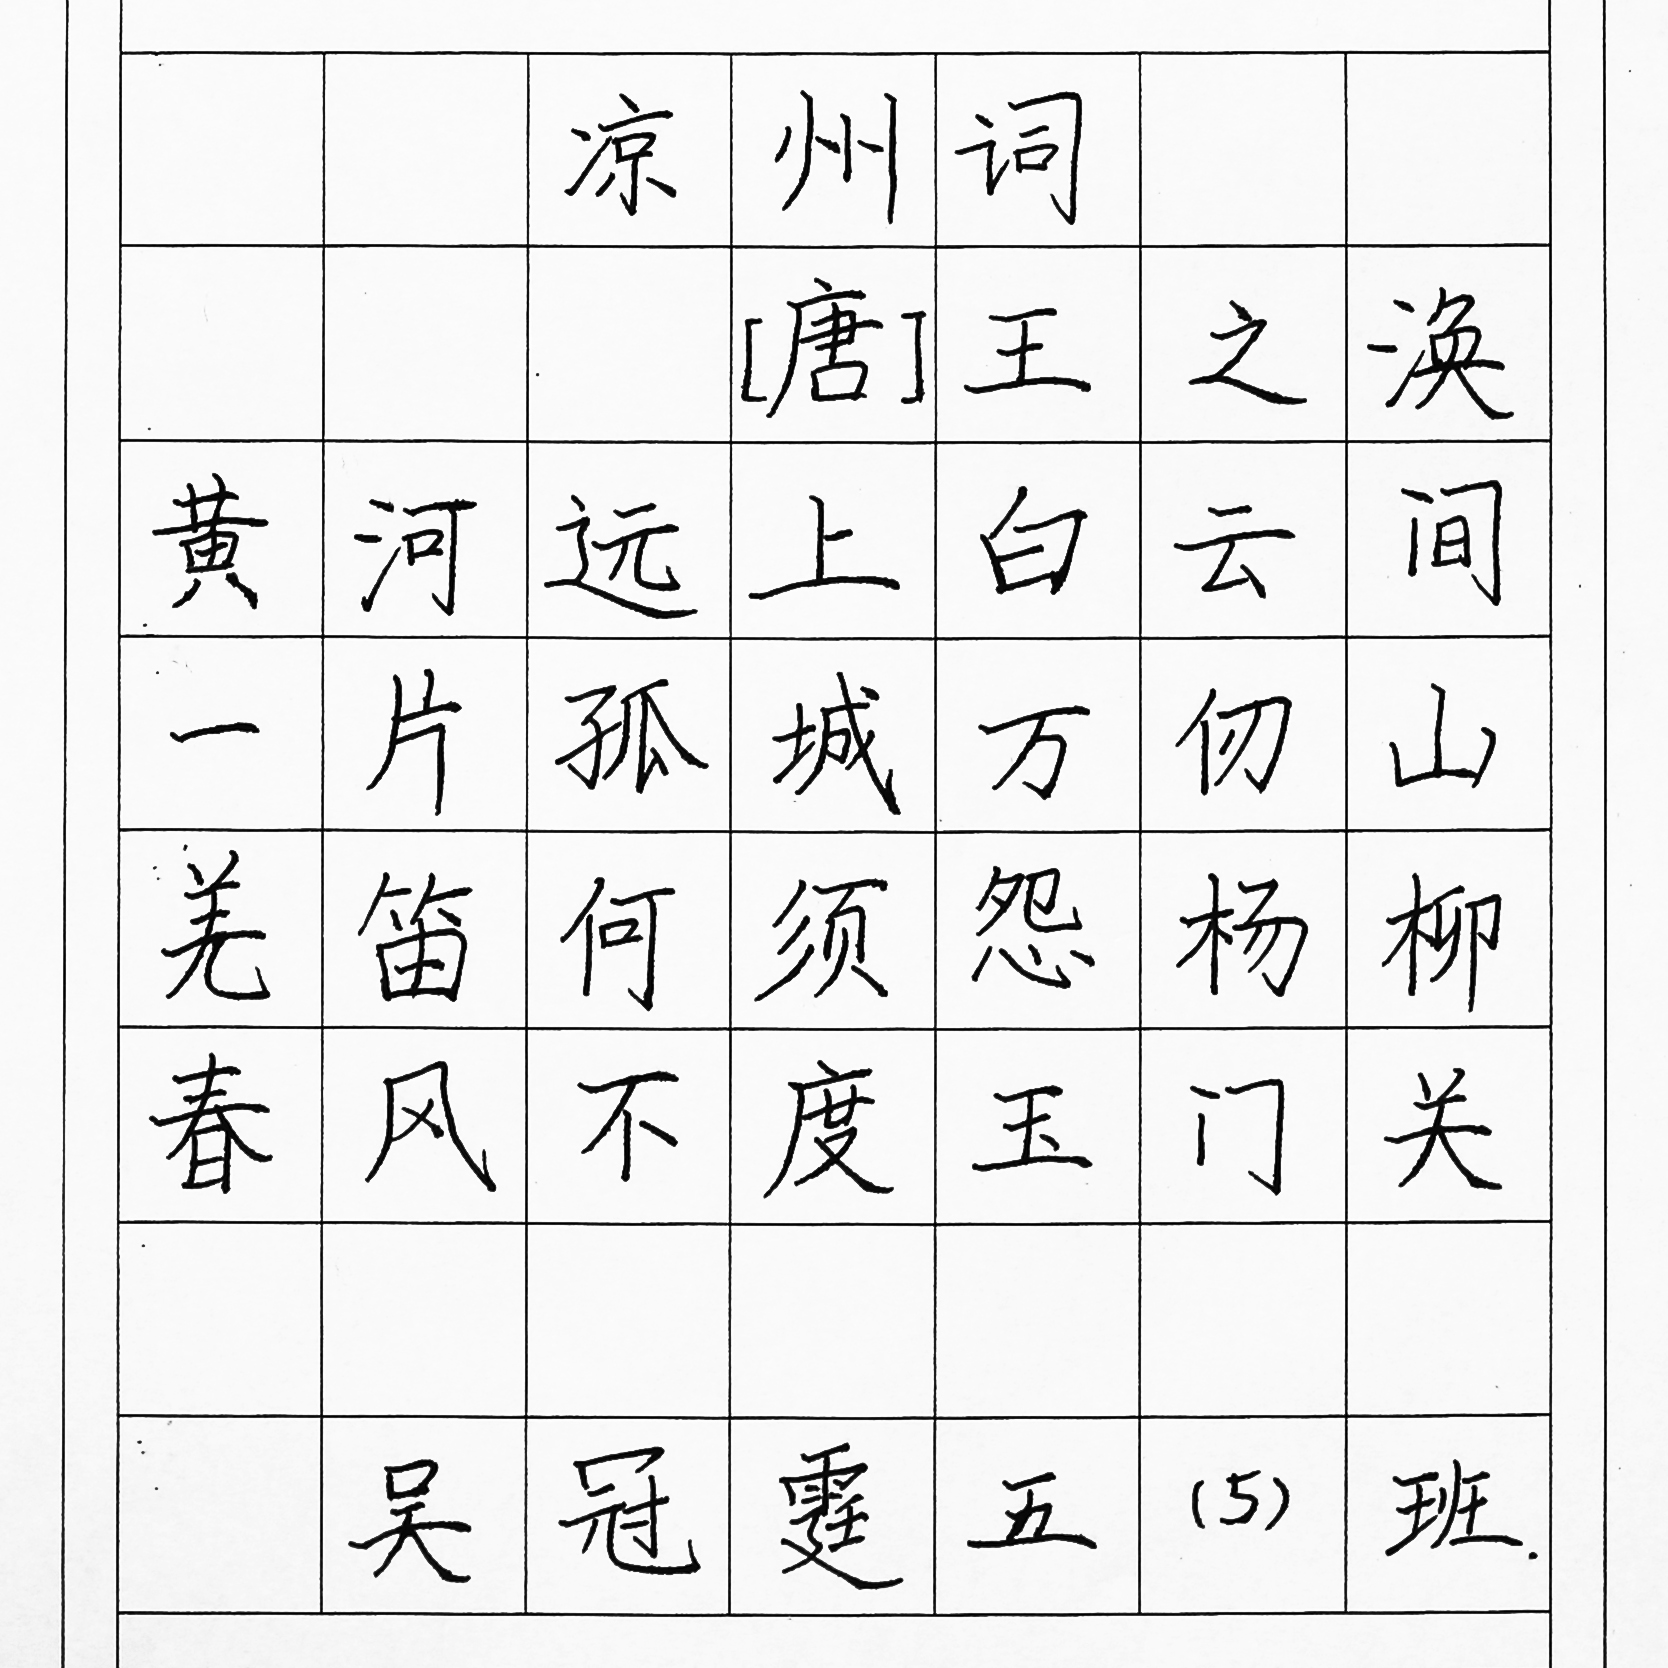 凉州词
[唐]王之涣
黄河远上白云间
一片孤城万仞山
羌笛何须怨杨柳
春风不度玉门关
吴冠霆五(5)班.